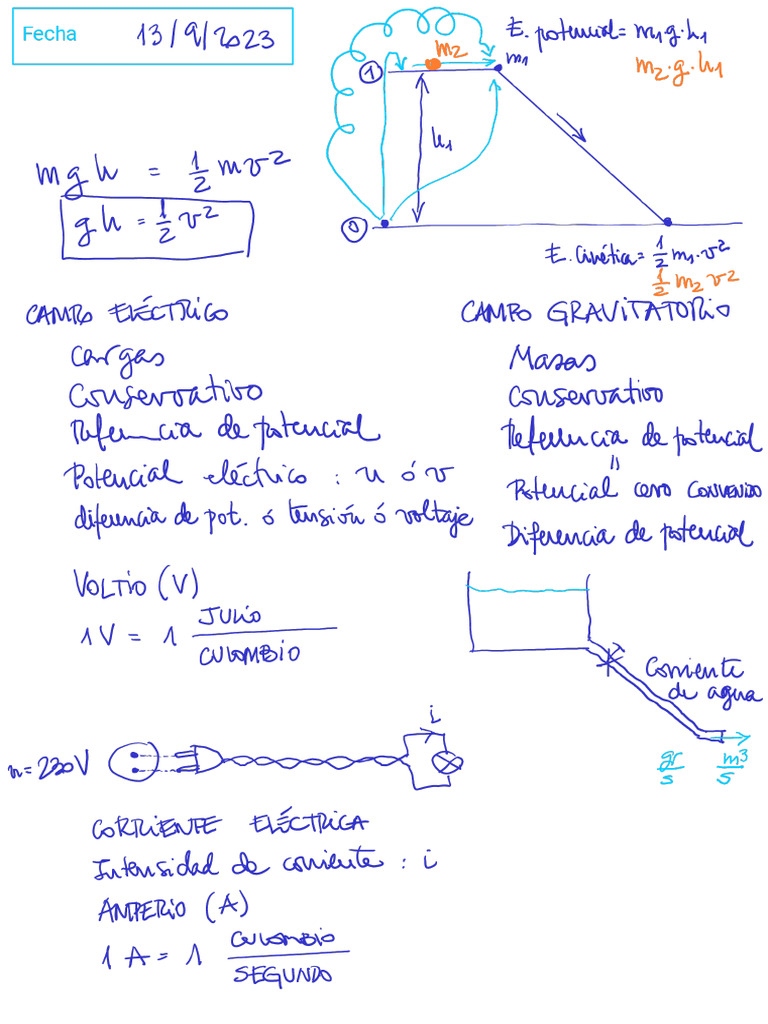 Fecha 13/9/2023
E. potencial = m₁g·h₁
m₂·g·h₁
m₂
m₁
1
h₁
mgh = 1/2 mv²
gh = 1/2 v²
0
E. Cinética = 1/2 m₁·v²
1/2 m₂ v²
CAMPO ELÉCTRICO
Cargas
Conservativo
Referencia de potencial
Potencial eléctrico : u ó v
diferencia de pot. ó tensión ó voltaje
VOLTIO (V)
1V = 1 JULIO / CULOMBIO
CAMPO GRAVITATORIO
Masas
Conservativo
Referencia de potencial
=
Potencial cero CONVENIDO
Diferencia de potencial
Corriente
de agua
gr/s m³/s
i
u = 230V
CORRIENTE ELÉCTRICA
Intensidad de corriente : i
AMPERIO (A)
1 A = 1 CULOMBIO / SEGUNDO